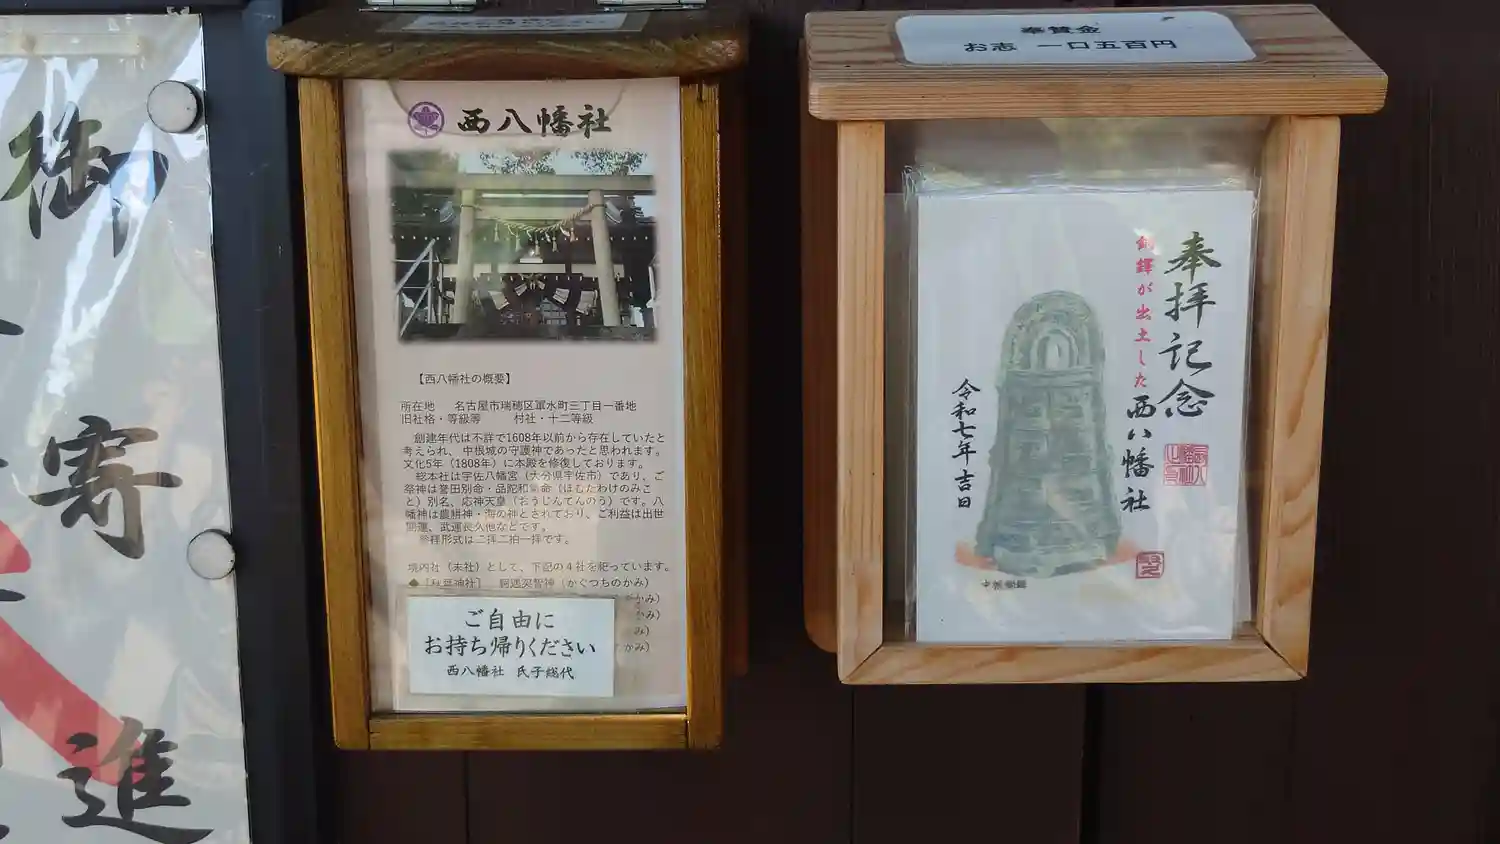 御
寄
進
西八幡社
【西八幡社の概要】
所在地 名古屋市瑞穂区軍水町三丁目一番地
旧社格・等級等 村社・十二等級
創建年代は不詳で1608年以前から存在していたと
考えられ、中根城の守護神であったと思われます。
文化5年（1808年）に本殿を修復しております。
総本社は宇佐八幡宮（大分県宇佐市）であり、ご
祭神は誉田別命・品陀和氣命（ほむたわけのみこ
と）別名、応神天皇（おうじんてんのう）です。八
幡神は農耕神・海の神とされており、ご利益は出世
開運、武運長久他などです。
参拝形式は二拝二拍一拝です。
境内社（末社）として、下記の４社を祀っています。
◆［秋葉神社］ 軻遇突智神（かぐつちのかみ）
かみ）
かみ）
み）
かみ）
ご自由に
お持ち帰りください
西八幡社 氏子総代
奉賛金
お志 一口五百円
奉拝記念
銅鐸が出土した
西八幡社
令和七年吉日
中根銅鐸